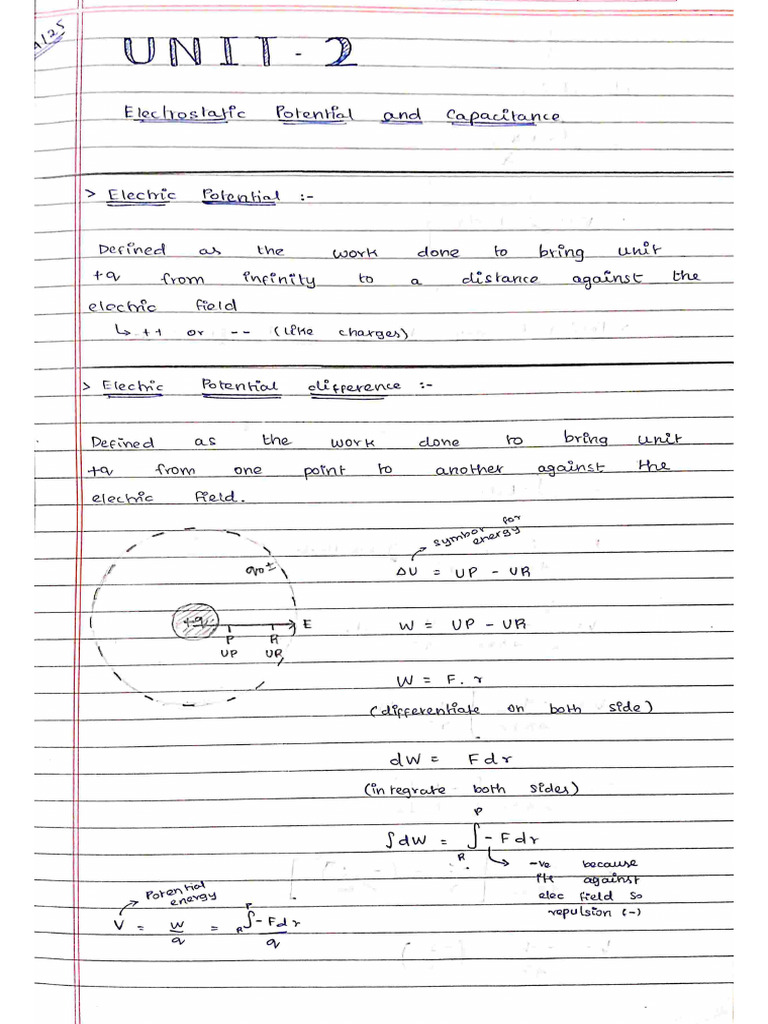 UNIT - 2
Electrostatic Potential and Capacitance
> Electric Potential :-
Defined as the work done to bring unit
+q from infinity to a distance against the
electric field
↳ ++ or -- (like charges)
> Electric Potential difference :-
Defined as the work done to bring unit
+q from one point to another against the
electric field.
symbol for
energy
ΔU = UP - UR
q0±
+q
E
P R
UP UR
W = UP - UR
W = F. r
(differentiate on both side)
dW = Fdr
(integrate both sides)
P
∫dW = ∫-Fdr
R
-ve because
its against
elec field so
repulsion (-)
Potential
energy
V = W/q = R∫P -Fdr/q